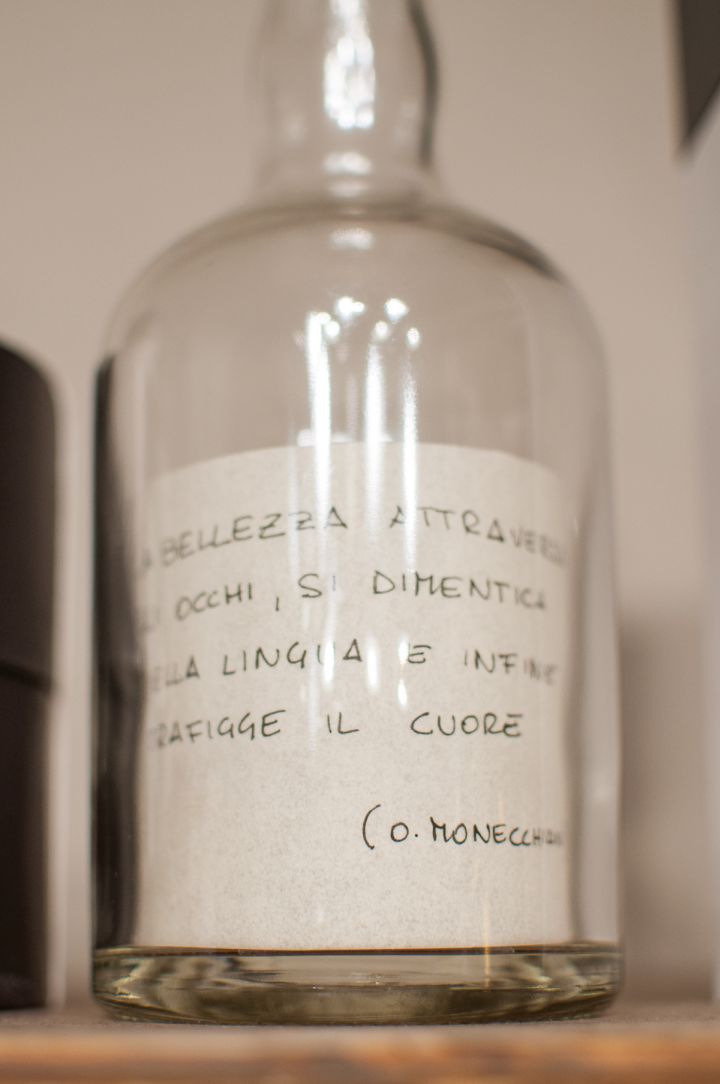 LA BELLEZZA ATTRAVERSA
GLI OCCHI, SI DIMENTICA
DELLA LINGUA E INFINE
TRAFIGGE IL CUORE
(O.